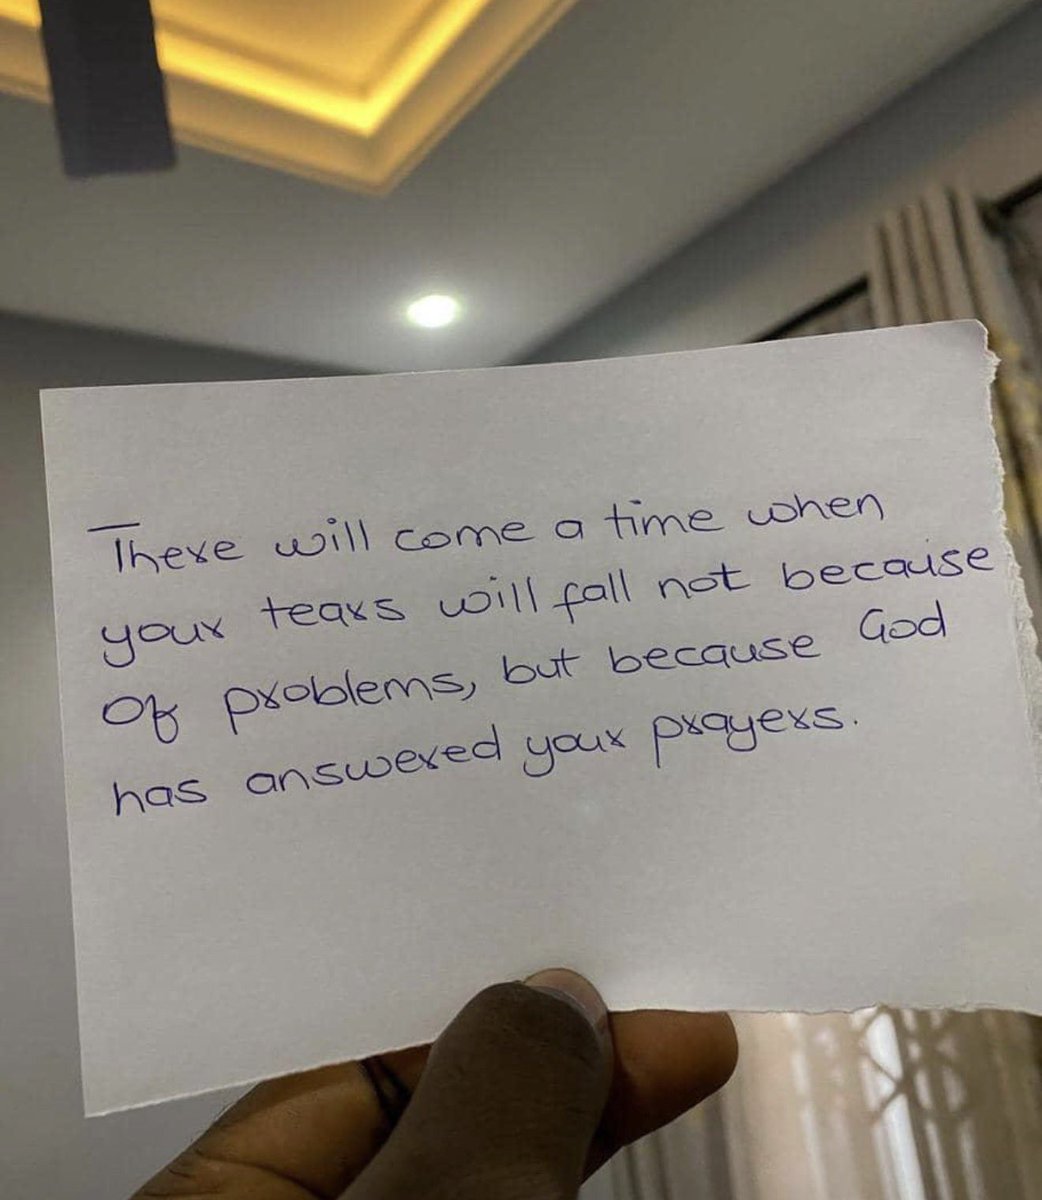 There will come a time when
your tears will fall not because
Of problems, but because God
has answered your prayers.